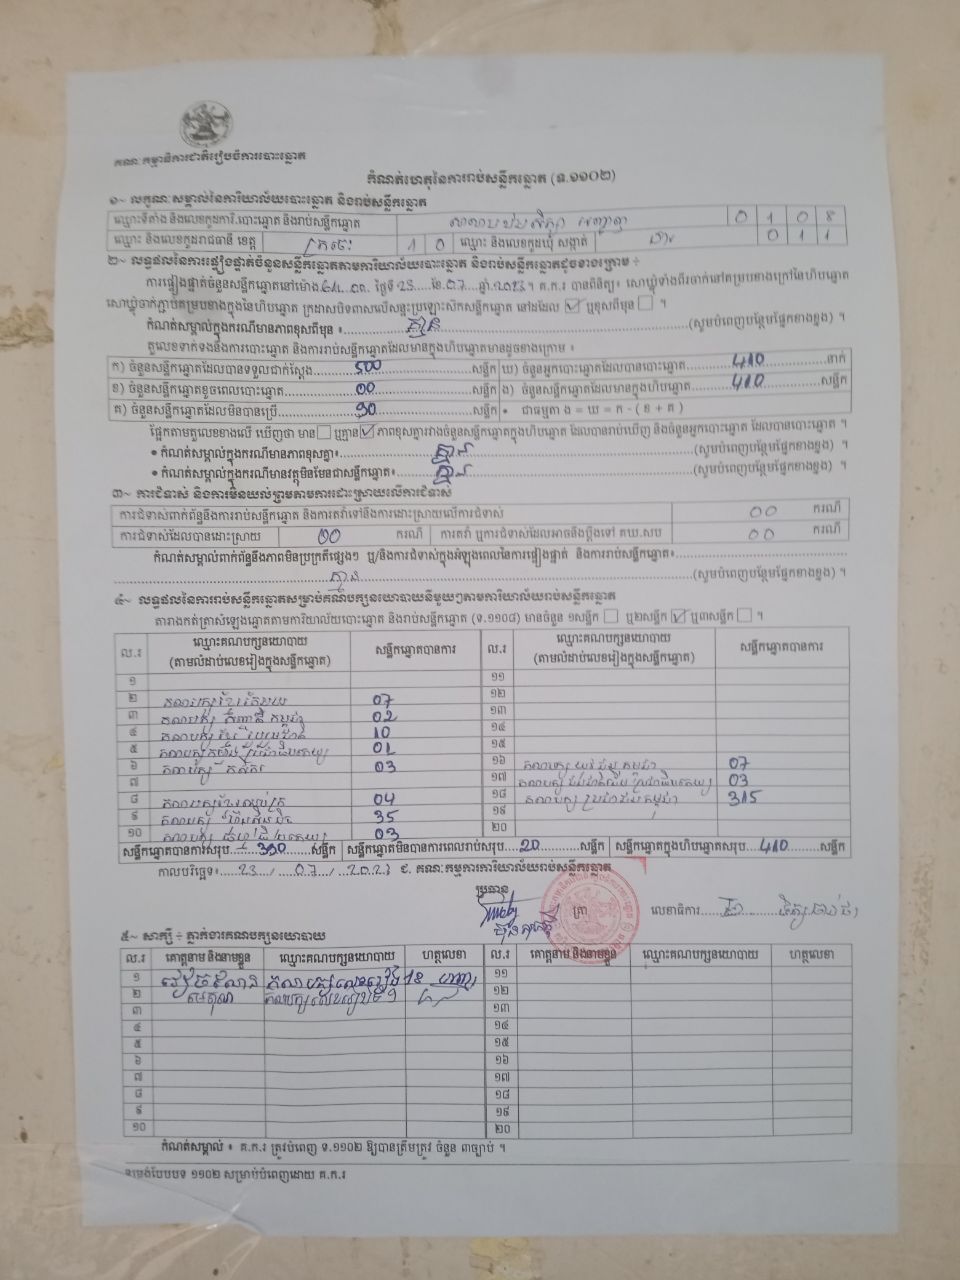 គណៈកម្មាធិការជាតិរៀបចំការបោះឆ្នោត
កំណត់ហេតុនៃការរាប់សន្លឹកឆ្នោត (ទ.១១០២)
១~ លក្ខណៈសម្គាល់នៃការិយាល័យបោះឆ្នោត និងរាប់សន្លឹកឆ្នោត
ឈ្មោះទីតាំង និងលេខកូដការិ.បោះឆ្នោត និងរាប់សន្លឹកឆ្នោត 0 1 0 8
ឈ្មោះ និងលេខកូដរាជធានី ខេត្ត ក្រចេះ 1 0 ឈ្មោះ និងលេខកូដឃុំ សង្កាត់ 0 1 1
២~ លទ្ធផលនៃការផ្ទៀងផ្ទាត់ចំនួនសន្លឹកឆ្នោតតាមការិយាល័យបោះឆ្នោត និងរាប់សន្លឹកឆ្នោតដូចខាងក្រោម ÷
ការផ្ទៀងផ្ទាត់ចំនួនសន្លឹកឆ្នោតនៅម៉ោង ថ្ងៃទី 23 ខែ 07 ឆ្នាំ 2023 ។ គ.ក.រ បានពិនិត្យ៖ សោឃ្លុំទាំងពីរចាក់នៅគម្របខាងក្រៅនៃហិបឆ្នោត
សោឃ្លុំចាក់ភ្ជាប់គម្របខាងក្នុងនៃហិបឆ្នោត ក្រដាសបិទពាសលើសន្ទះប្រឡោះស៊កសន្លឹកឆ្នោត នៅដដែល ☑ ឬខុសពីមុន ☐ ។
កំណត់សម្គាល់ក្នុងករណីមានភាពខុសពីមុន ៖ គ្មាន (សូមបំពេញបន្ថែមផ្នែកខាងខ្នង) ។
តួលេខទាក់ទងនឹងការបោះឆ្នោត និងការរាប់សន្លឹកឆ្នោតដែលមានក្នុងហិបឆ្នោតមានដូចខាងក្រោម ៖
ក) ចំនួនសន្លឹកឆ្នោតដែលបានទទួលជាក់ស្តែង 500 សន្លឹក ឃ) ចំនួនអ្នកបោះឆ្នោតដែលបានបោះឆ្នោត 410 នាក់
ខ) ចំនួនសន្លឹកឆ្នោតខូចពេលបោះឆ្នោត 00 សន្លឹក ង) ចំនួនសន្លឹកឆ្នោតដែលមានក្នុងហិបឆ្នោត 410 សន្លឹក
គ) ចំនួនសន្លឹកឆ្នោតដែលមិនបានប្រើ 90 សន្លឹក • ជាធម្មតា ង = ឃ = ក - ( ខ + គ )
ផ្អែកតាមតួលេខខាងលើ ឃើញថា មាន ☐ ឬគ្មាន ☑ ភាពខុសគ្នារវាងចំនួនសន្លឹកឆ្នោតក្នុងហិបឆ្នោត ដែលបានរាប់ឃើញ និងចំនួនអ្នកបោះឆ្នោត ដែលបានបោះឆ្នោត ។
• កំណត់សម្គាល់ក្នុងករណីមានភាពខុសគ្នា៖ គ្មាន (សូមបំពេញបន្ថែមផ្នែកខាងខ្នង) ។
• កំណត់សម្គាល់ក្នុងករណីមានវត្ថុមិនមែនជាសន្លឹកឆ្នោត៖ គ្មាន (សូមបំពេញបន្ថែមផ្នែកខាងខ្នង) ។
៣~ ការជំទាស់ និងការមិនយល់ព្រមតាមការដោះស្រាយលើការជំទាស់
ការជំទាស់ពាក់ព័ន្ធនឹងការរាប់សន្លឹកឆ្នោត និងការតវ៉ាទៅនឹងការដោះស្រាយលើការជំទាស់ 00 ករណី
ការជំទាស់ដែលបានដោះស្រាយ 00 ករណី ការតវ៉ា ឬការជំទាស់ដែលអាចនឹងប្តឹងទៅ គឃ.សប 00 ករណី
កំណត់សម្គាល់ពាក់ព័ន្ធនឹងភាពមិនប្រក្រតីផ្សេងៗ ឬ/និងការជំទាស់ក្នុងអំឡុងពេលនៃការផ្ទៀងផ្ទាត់ និងការរាប់សន្លឹកឆ្នោត៖
គ្មាន (សូមបំពេញបន្ថែមផ្នែកខាងខ្នង) ។
៤~ លទ្ធផលនៃការរាប់សន្លឹកឆ្នោតសម្រាប់គណបក្សនយោបាយនីមួយៗតាមការិយាល័យរាប់សន្លឹកឆ្នោត
តារាងកត់ត្រាសំឡេងឆ្នោតតាមការិយាល័យបោះឆ្នោត និងរាប់សន្លឹកឆ្នោត (ទ.១១០៨) មានចំនួន ១សន្លឹក ☐ ឬ២សន្លឹក ☑ ឬ៣សន្លឹក ☐ ។
ល.រ ឈ្មោះគណបក្សនយោបាយ (តាមលំដាប់លេខរៀងក្នុងសន្លឹកឆ្នោត) សន្លឹកឆ្នោតបានការ ល.រ ឈ្មោះគណបក្សនយោបាយ (តាមលំដាប់លេខរៀងក្នុងសន្លឹកឆ្នោត) សន្លឹកឆ្នោតបានការ
១ ១១
២ 07 ១២
៣ 02 ១៣
៤ 10 ១៤
៥ 01 ១៥
៦ គណបក្ស កសិករ 03 ១៦ គណបក្ស យុវជនកម្ពុជា 07
៧ ១៧ 03
៨ 04 ១៨ គណបក្ស ប្រជាជនកម្ពុជា 315
៩ គណបក្ស ហ៊្វុនស៊ិនប៉ិច 35 ១៩
១០ 03 ២០
សន្លឹកឆ្នោតបានការសរុប 390 សន្លឹក សន្លឹកឆ្នោតមិនបានការពេលរាប់សរុប 20 សន្លឹក សន្លឹកឆ្នោតក្នុងហិបឆ្នោតសរុប 410 សន្លឹក
កាលបរិច្ឆេទ៖ 23 / 07 / 2023 ជ. គណៈកម្មការការិយាល័យរាប់សន្លឹកឆ្នោត
ប្រធាន
ត្រា លេខាធិការ
៥~ សាក្សី ÷ ភ្នាក់ងារគណបក្សនយោបាយ
ល.រ គោត្តនាម និងនាមខ្លួន ឈ្មោះគណបក្សនយោបាយ ហត្ថលេខា ល.រ គោត្តនាម និងនាមខ្លួន ឈ្មោះគណបក្សនយោបាយ ហត្ថលេខា
១ ១១
២ ១២
៣ ១៣
៤ ១៤
៥ ១៥
៦ ១៦
៧ ១៧
៨ ១៨
៩ ១៩
១០ ២០
កំណត់សម្គាល់ ៖ គ.ក.រ ត្រូវបំពេញ ទ.១១០២ ឱ្យបានត្រឹមត្រូវ ចំនួន ៣ច្បាប់ ។
ទម្រង់បែបបទ ១១០២ សម្រាប់បំពេញដោយ គ.ក.រ